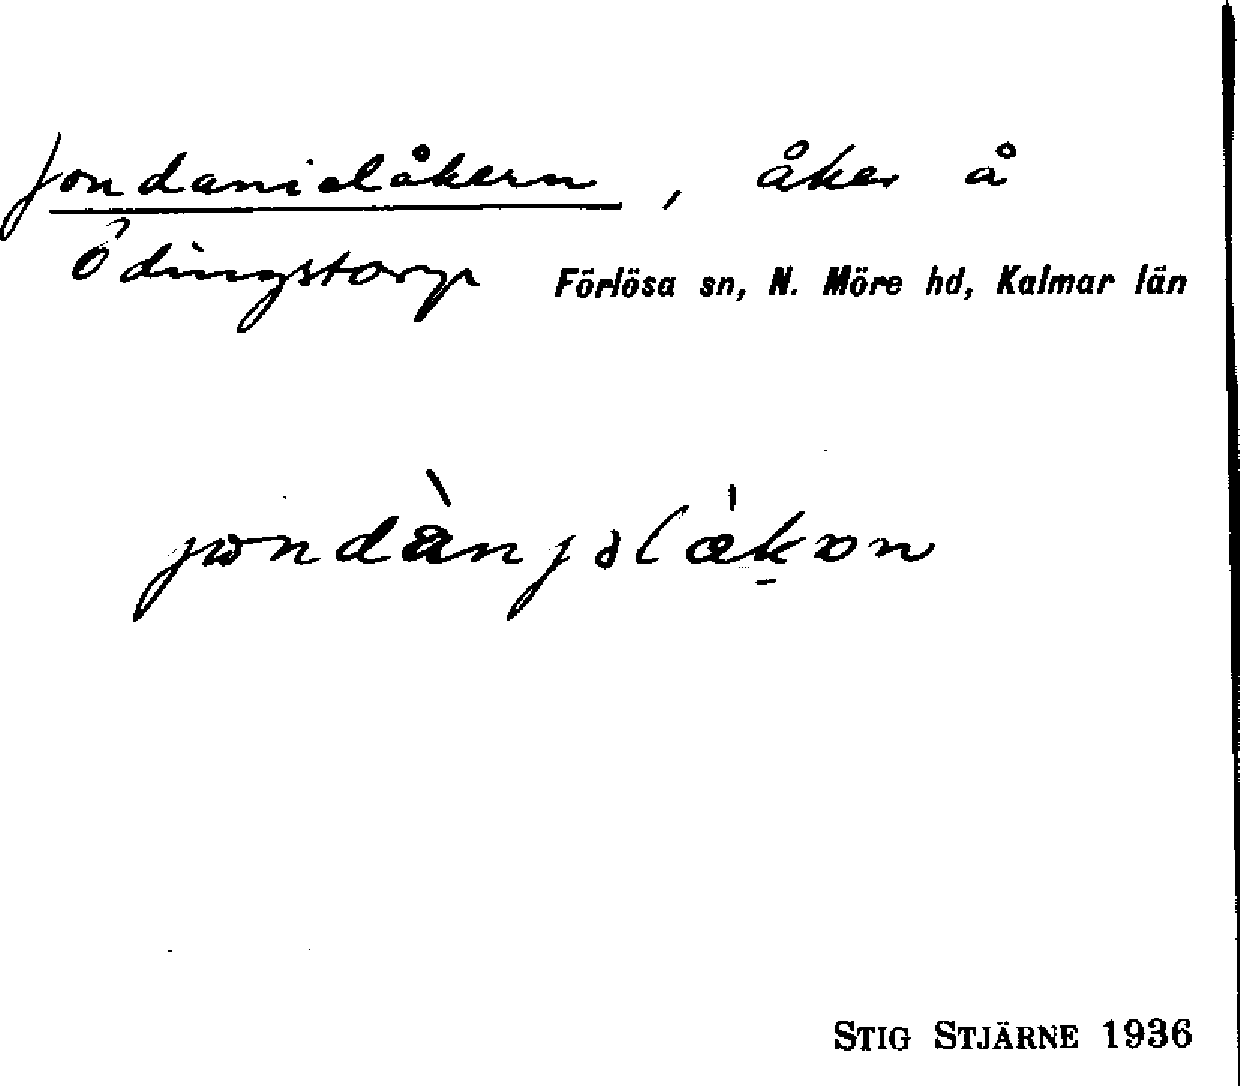 Jondanielåkern, åker å
Ödingstorp Förlösa sn, N. Möre hd, Kalmar län
STIG STJÄRNE 1936